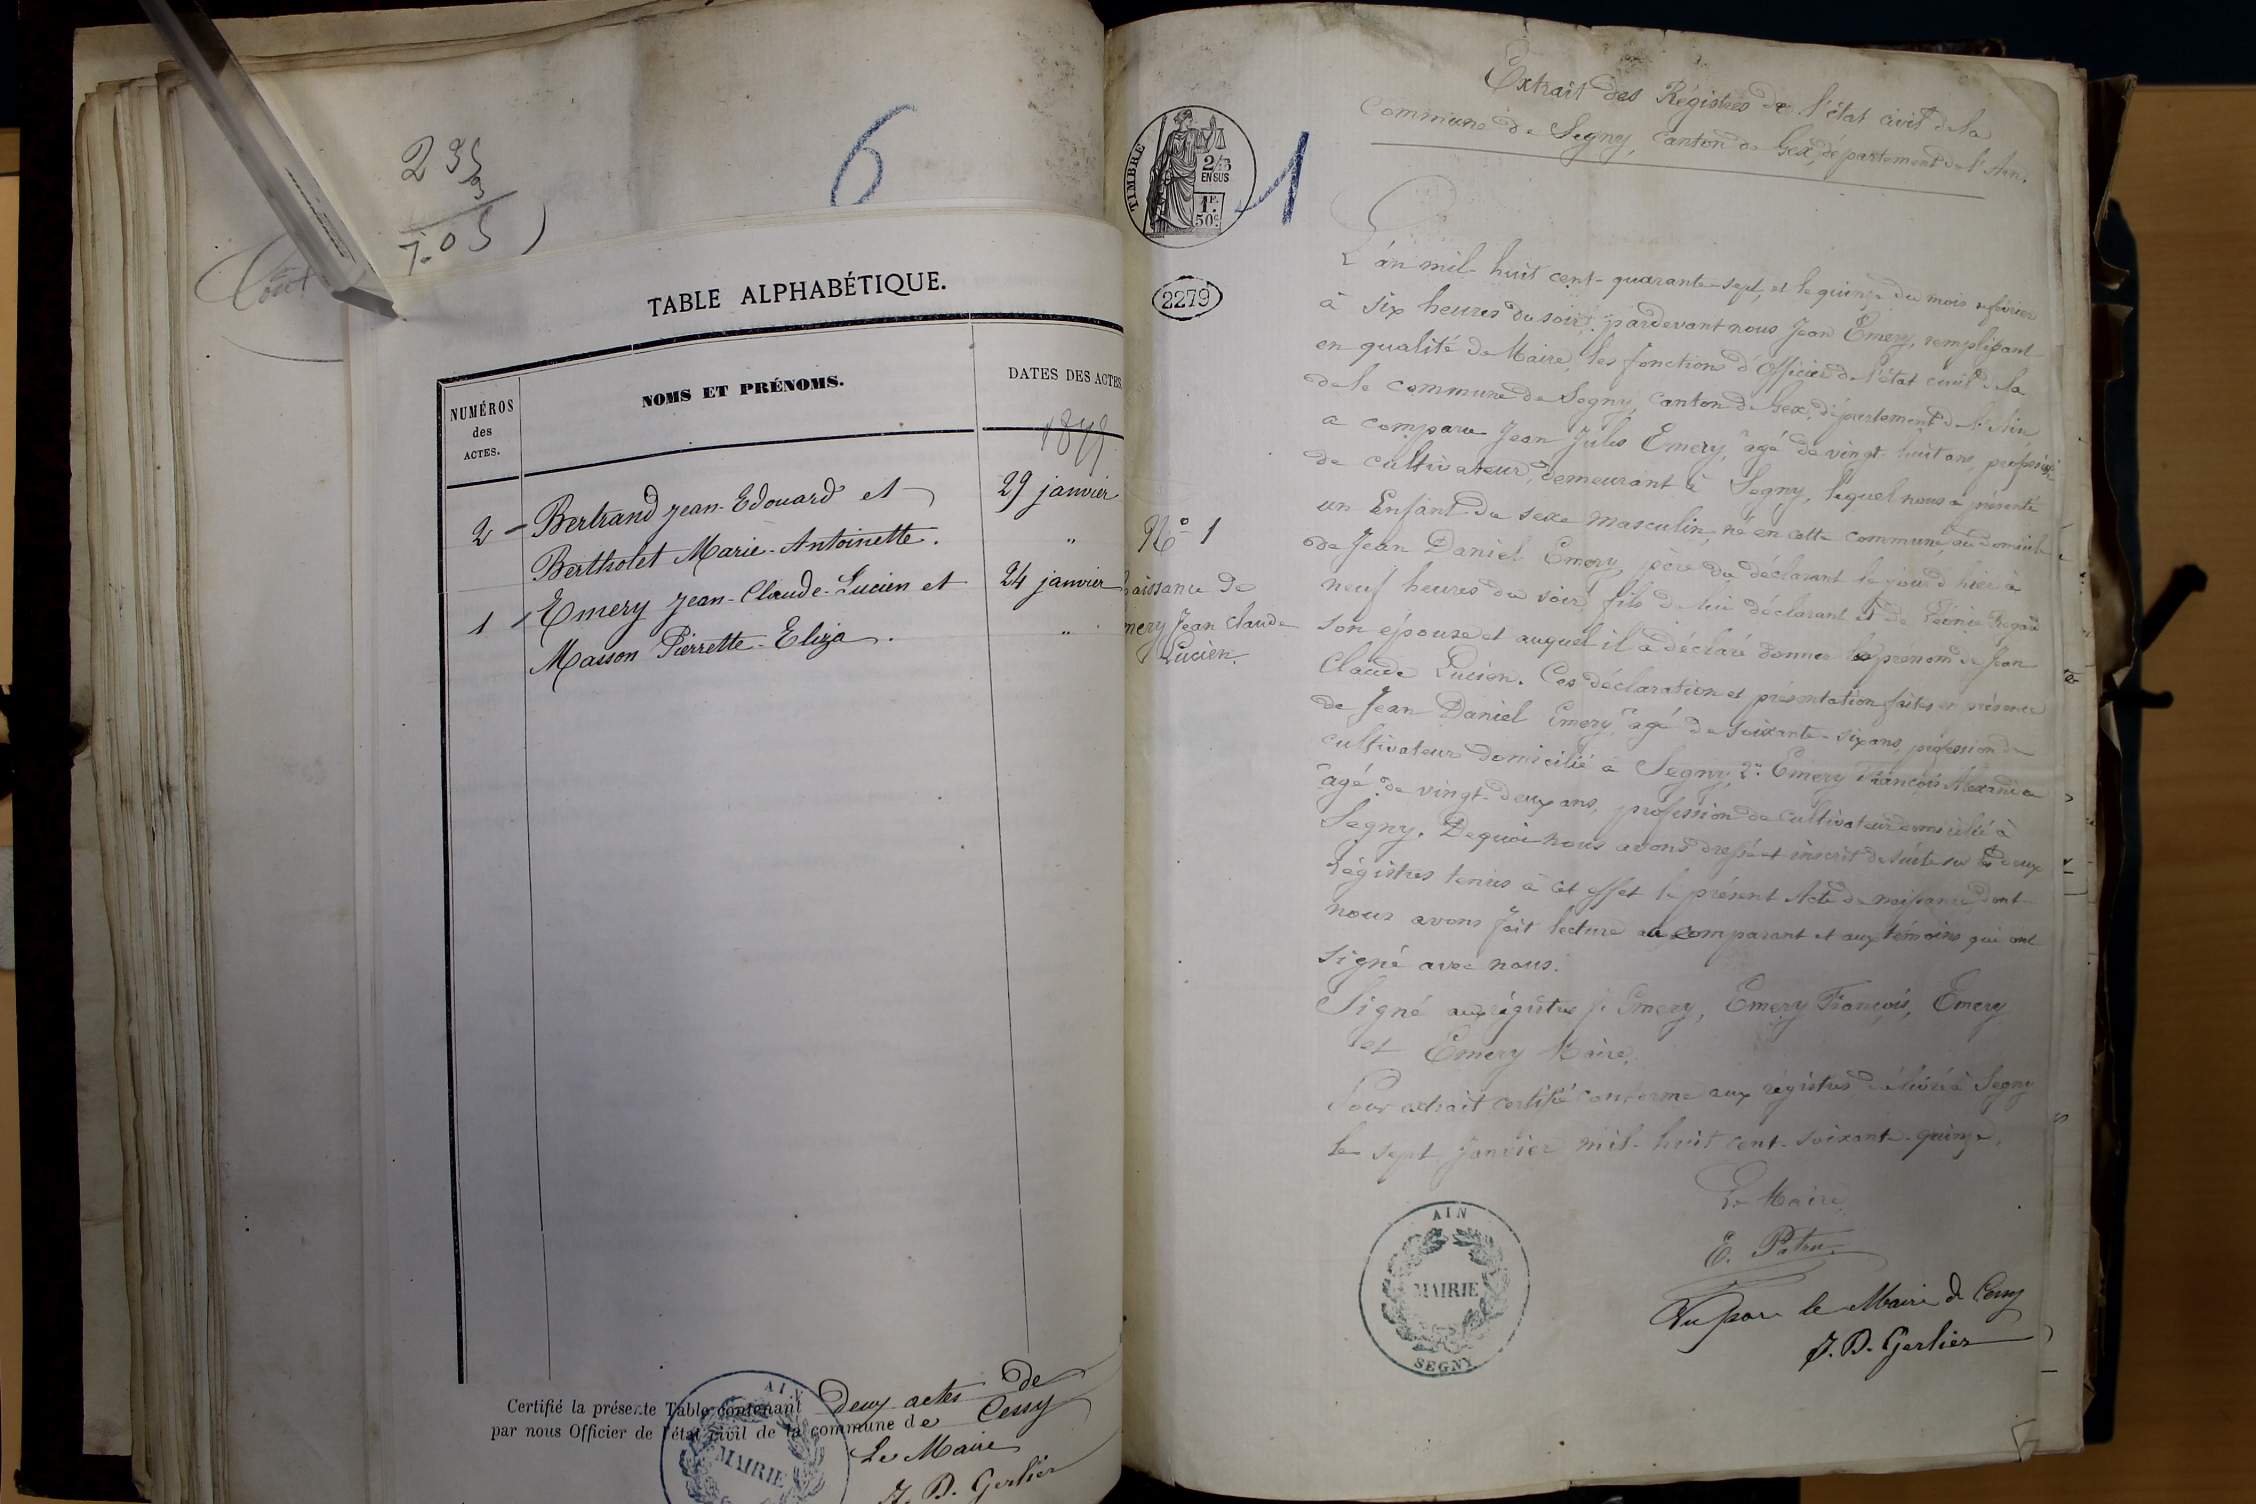 235
3
7.05
6
TABLE ALPHABÉTIQUE.
NUMÉROS
des
ACTES.
NOMS ET PRÉNOMS.
DATES DES ACTES
2 - Bertrand Jean-Edouard et 29 janvier
Bertholet Marie-Antoinette. "
1 Emery Jean-Claude-Lucien et 24 janvier
Masson Pierrette-Eliza. "
Certifié la présente Table contenant deux actes de
par nous Officier de l'état civil de la commune de Cessy
Le Maire
J. D. Gerlier
AIN
MAIRIE
TIMBRE
2/3
EN SUS
1F.
50c.
1
2279
Nº 1
aissance de
mery Jean Claude
Lucien.
Extrait des Régistres de l'état civil de la
Commune de Segny, canton de Gex, département de l'Ain.
L'an mil-huit cent-quarante-sept, et le quinze du mois de février
à six heures du soir, pardevant nous Jean Emery, remplissant
en qualité de Maire, les fonction d'Officier de l'état civil de la
de la commune de Segny, canton de Gex, département de l'Ain
a comparu Jean Jules Emery, âgé de vingt-huit ans, profession
de cultivateur, demeurant à Segny, lequel nous a présenté
un Enfant du sexe masculin, né en cette commune, au domicile
de Jean Daniel Emery, père du déclarant le jour d'hier à
neuf heures du soir, fils de lui déclarant et de Léonie
son épouse et auquel il a déclaré donner les prénom de Jean
Claude Lucien. Ces déclaration et présentation faites en présence
de Jean Daniel Emery, âgé de soixante-six ans, profession de
cultivateur domicilié à Segny, 2º. Emery François Alexandre
âgé de vingt-deux ans, profession de cultivateur domicilié à
Segny. De quoi nous avons dressé et inscrit de suite sur les deux
régistres tenus à cet effet le présent Acte de naissance, dont
nous avons fait lecture au comparant et aux témoins qui ont
signé avec nous.
Signé aux régistres J. Emery, Emery François, Emery
et Emery Maire.
Pour extrait certifié conforme aux régistres délivré à Segny
le sept janvier mil-huit cent-soixante-quinze.
Le Maire
E. Patru
AIN
MAIRIE
SEGNY
Vu par le Maire de Cessy
J. D. Gerlier